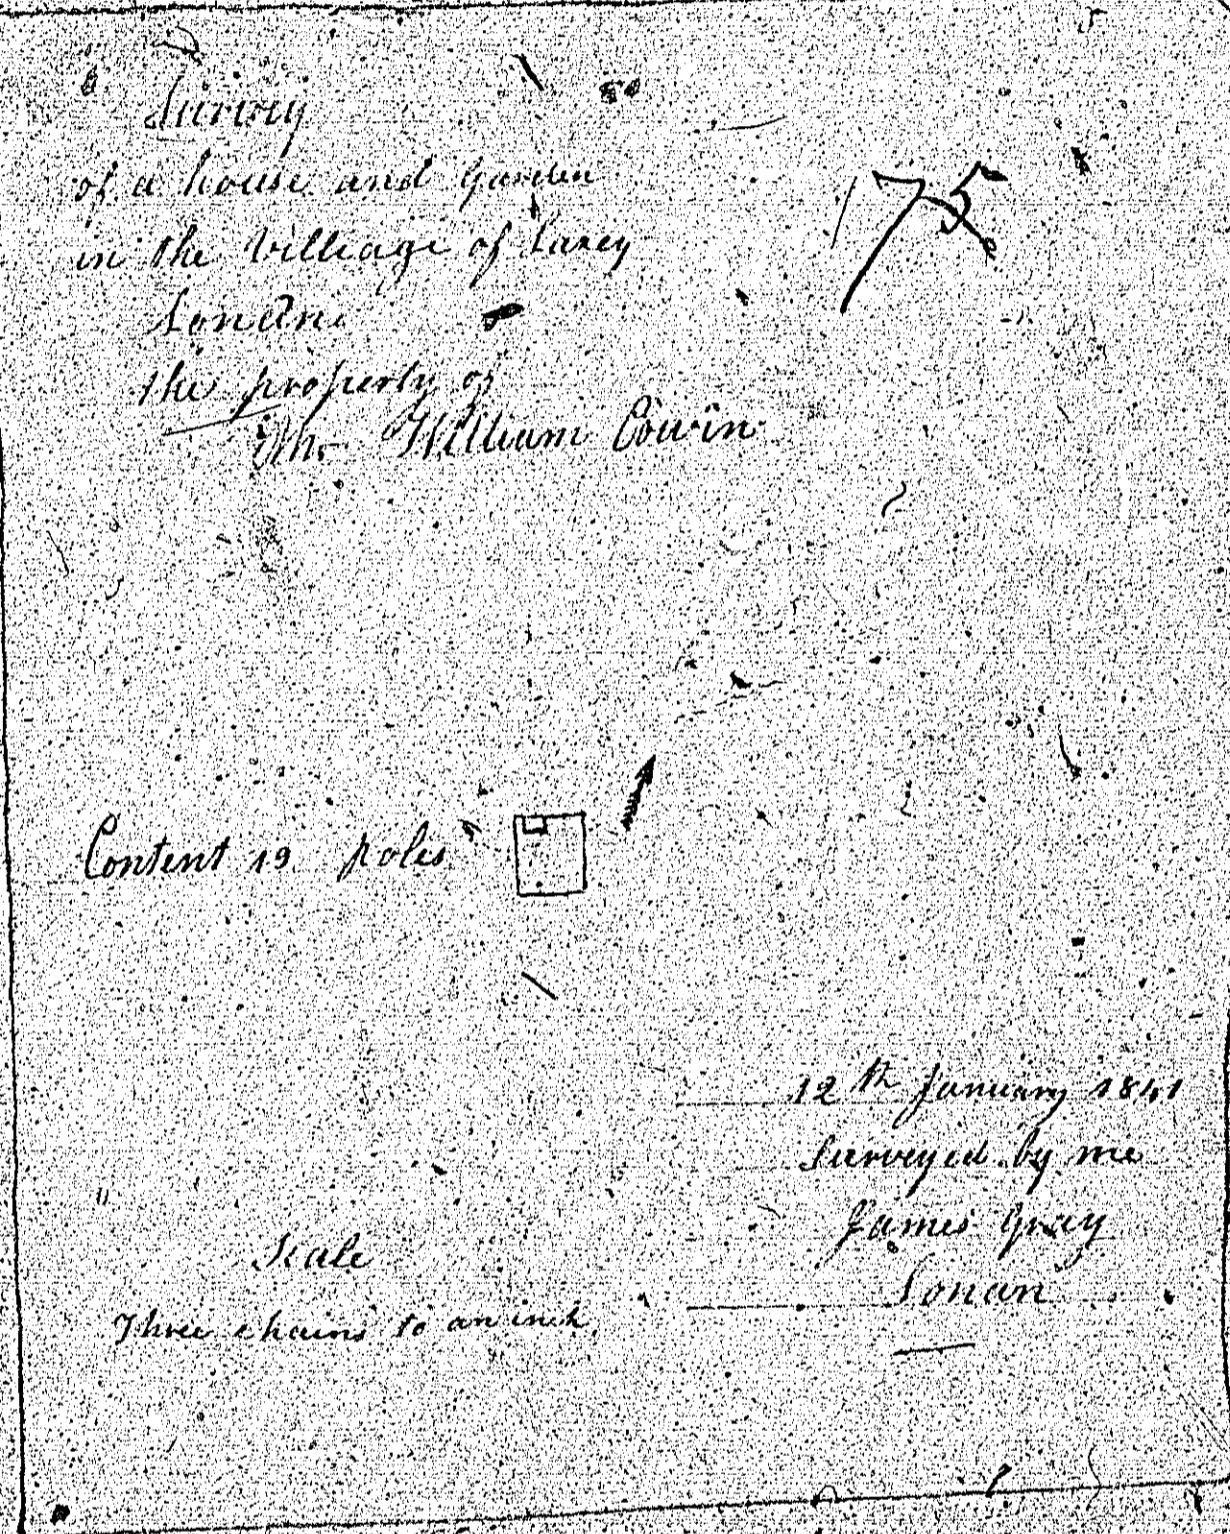 Survey
of a house and Garden
in the Villiage of Laxey
Lonan
the property of
Mr William Cowin
175
Content 19 poles
12th January 1841
Surveyed by me
James Gray
Lonan
Scale
Three chains to an inch